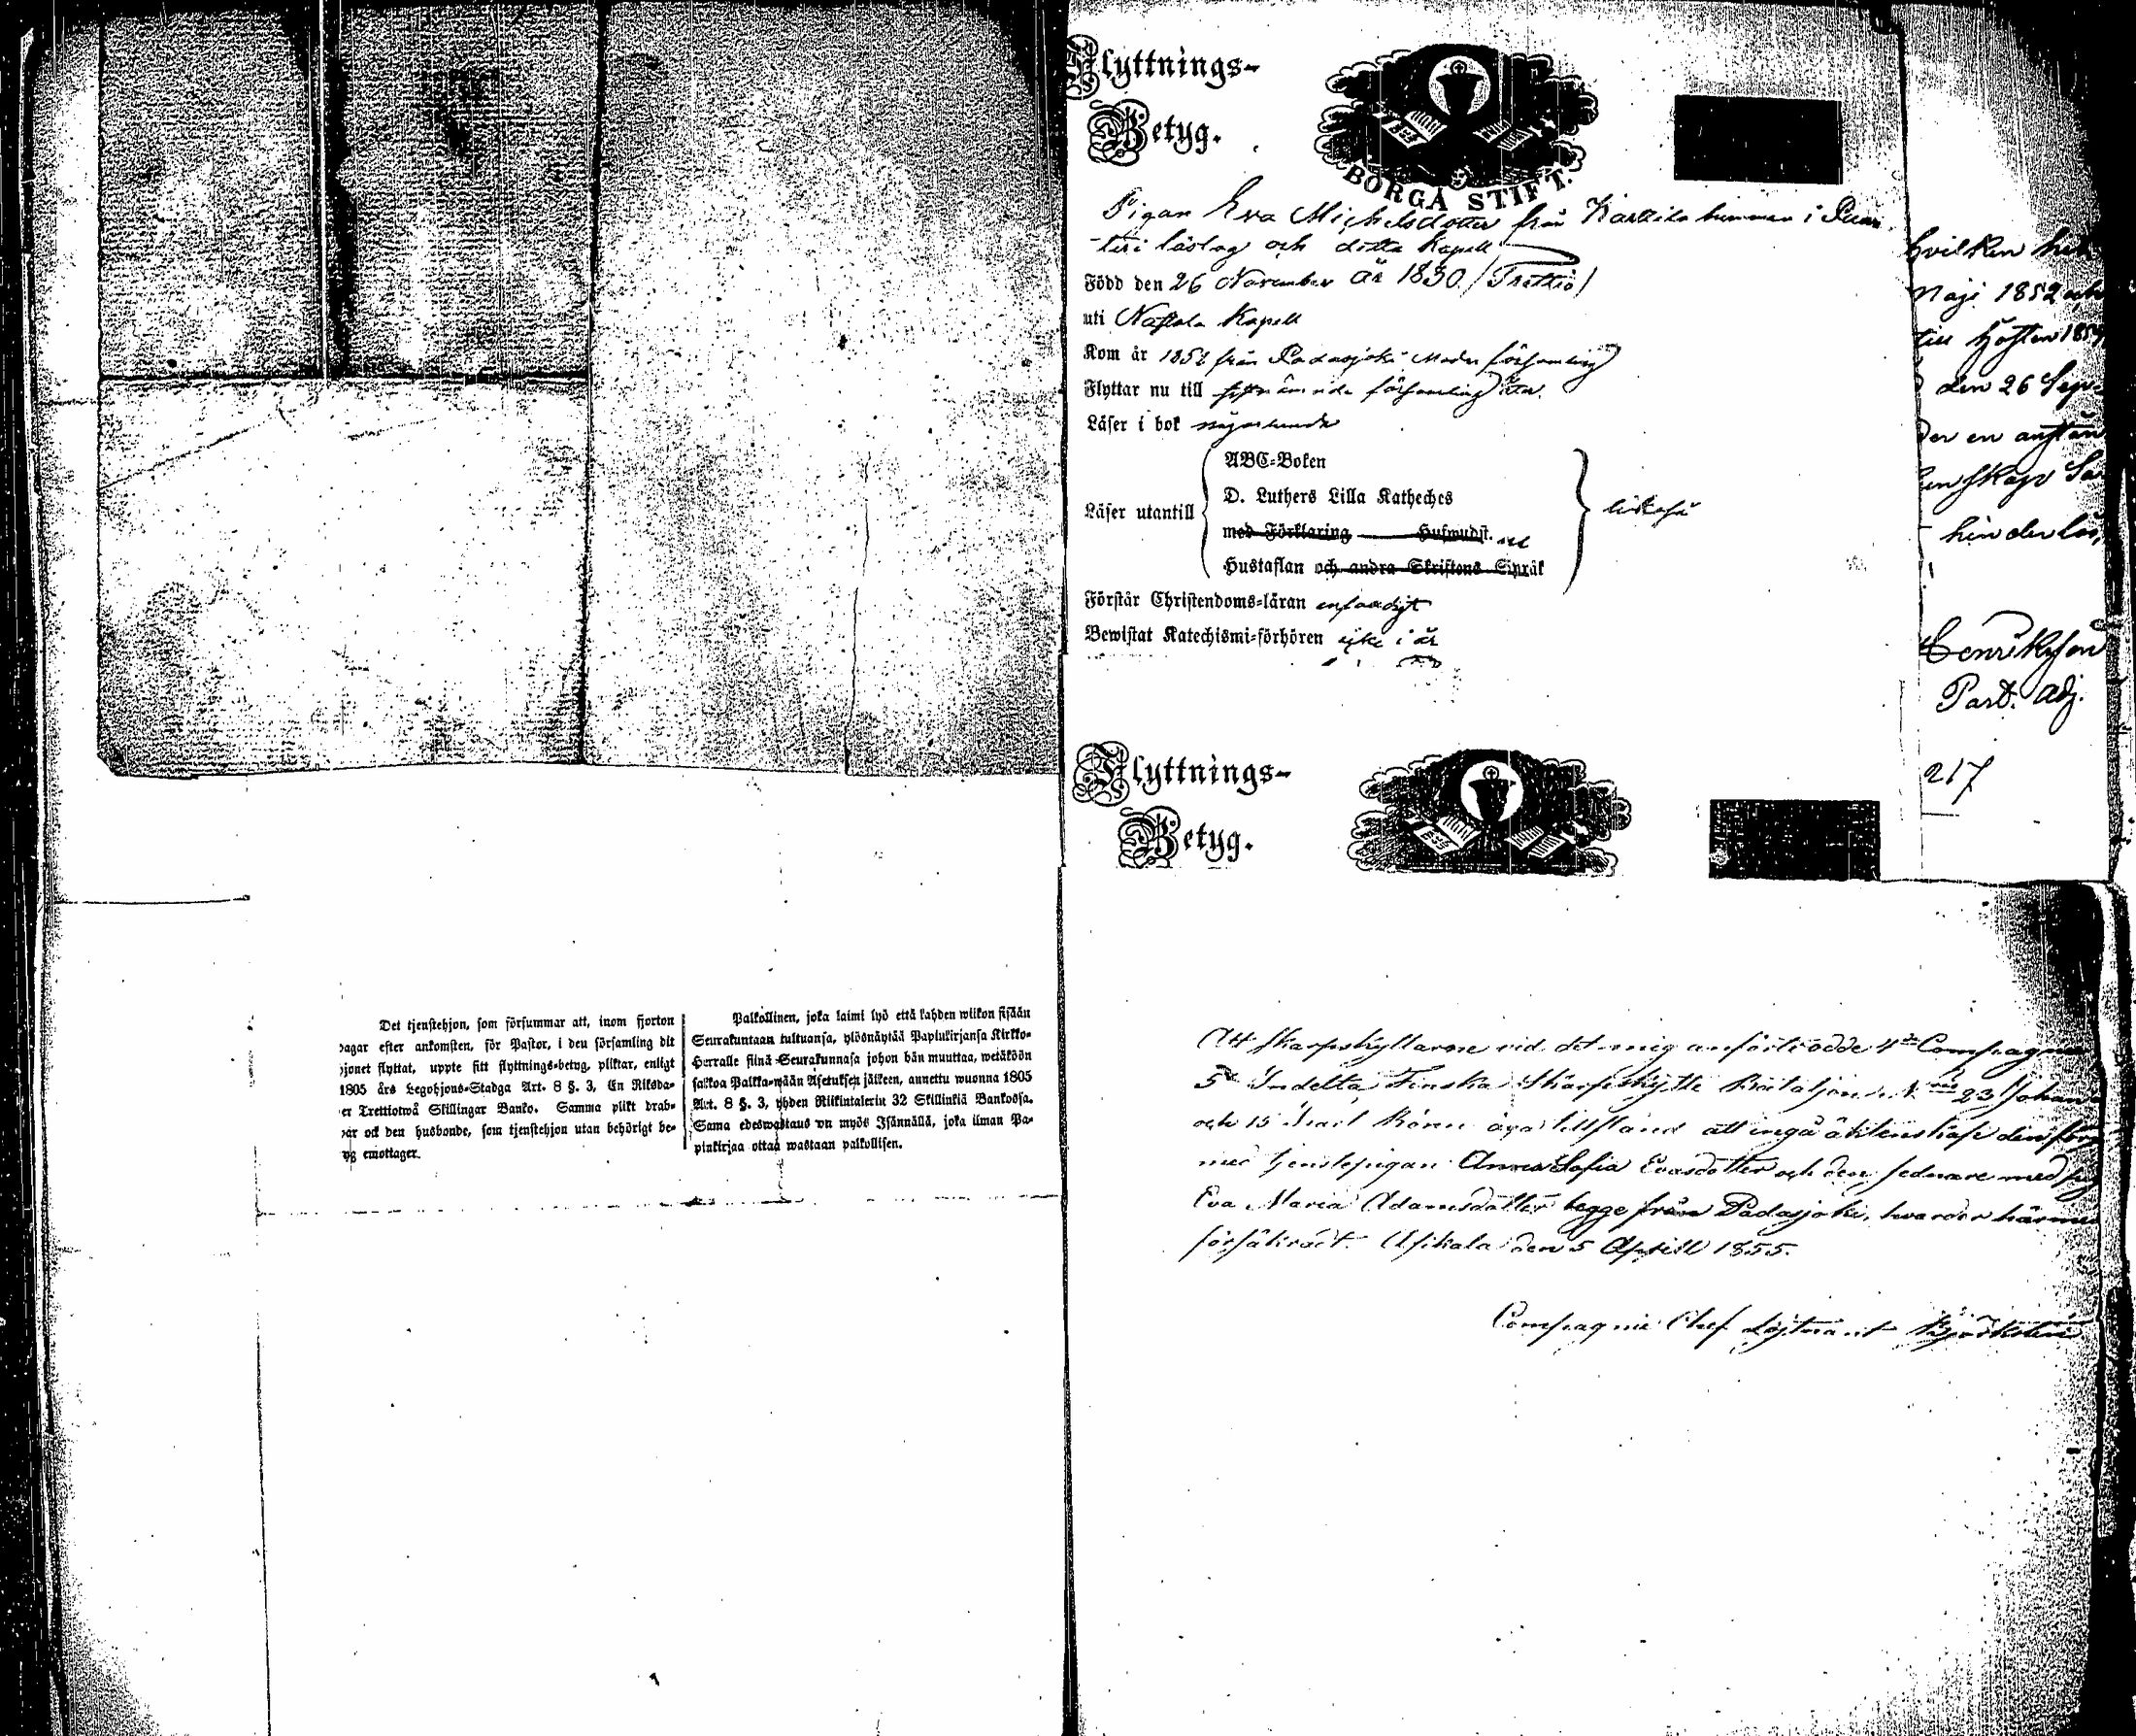 Flyttnings-
Betyg.
BORGÅ STIFT.
Pigan Eva Michelsdotter från Karkila hemman i
läslag och detta Kapell
Född den 26 November år 1830 / Trettio /
uti Nastola Kapell
Kom år 1852 från Padasjoki Moder församling
Flyttar nu till församling åter.
Läser i bok någorlunda
ABC-Boken
D. Luthers Lilla Katheches
Läser utantill
med Förklaring Hufwudst.
Hustaflan och andra Skriftens Språk
likaså
Förstår Christendoms-läran enfaldigt
Bewistat Katechismi-förhören i år
hvilken
Maji 1852 och
till hösten
den 26 Sep-
der en
enskaps
hinderlös,
Henriksson
Past. Adj.
217
Flyttnings-
Betyg.
Det tjenstehjon, som försummar att, inom fjorton
dagar efter ankomsten, för Pastor, i den församling dit
hjonet flyttat, uppte sitt flyttnings-betyg, pliktar, enligt
1805 års Legohjons-Stadga Art. 8 §. 3, En Riksda-
er Trettiotwå Skillingar Banko. Samma plikt drab-
bar ock den husbonde, som tjenstehjon utan behörigt be-
yg emottager.
Palkollinen, joka laimi lyö että kahden wiikon sisään
Seurakuntaan tultuansa, ylösnäytää Papinkirjansa Kirkko-
Herralle siinä Seurakunnasa johon hän muuttaa, wetäköön
sakkoa Palkka-wään Asetuksen jälkeen, annettu wuonna 1805
Art. 8 §. 3, yhden Riikintalerin 32 Skillinkiä Bankossa.
Sama edeswastaus on myös Isännällä, joka ilman Pa-
pinkirjaa ottaa wastaan palkollisen.
Att Skarpskyttarne vid det mig anförtrodde 4de Compagnie
5te Indelta Finska Skarpskytte Bataljon, 23 Johan
och 15 Isael Rönn äga tillstånd att ingå äktenskap den förre
med tjenstepigan Anna Sofia Evasdotter och den sednare med
Eva Maria Adamsdotter begge från Padasjoki, hvarder härmed
försäkradt. Asikala den 5 Aprill 1855.
Compagnie Chef Löjtnant Björksten